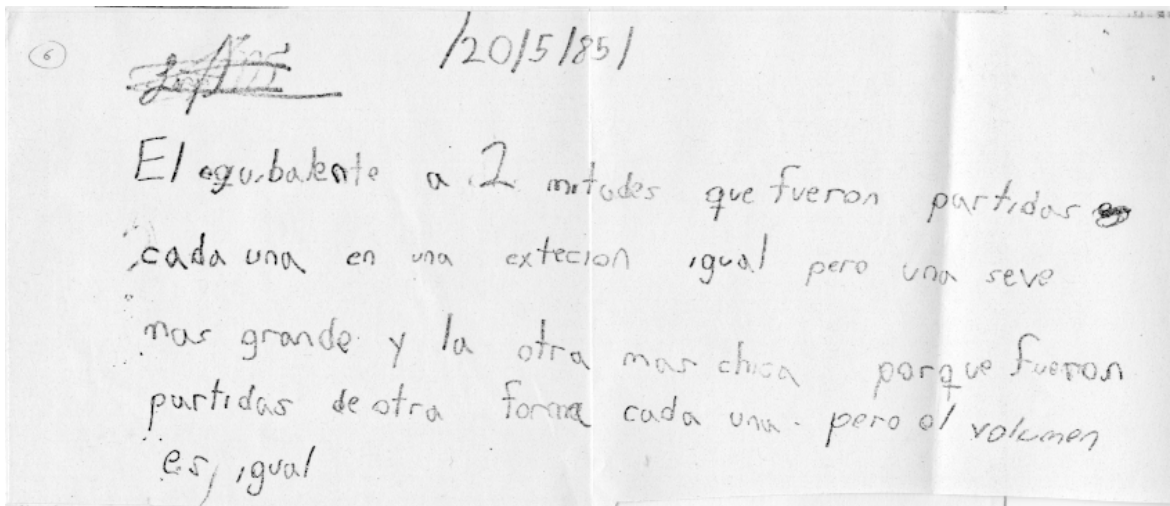 6
/20/5/85/
El equibalente a 2 mitades que fueron partidas
cada una en una extecion igual pero una seve
mas grande y la otra mas chica porque fueron
partidas de otra forma cada una. pero el volumen
es, igual